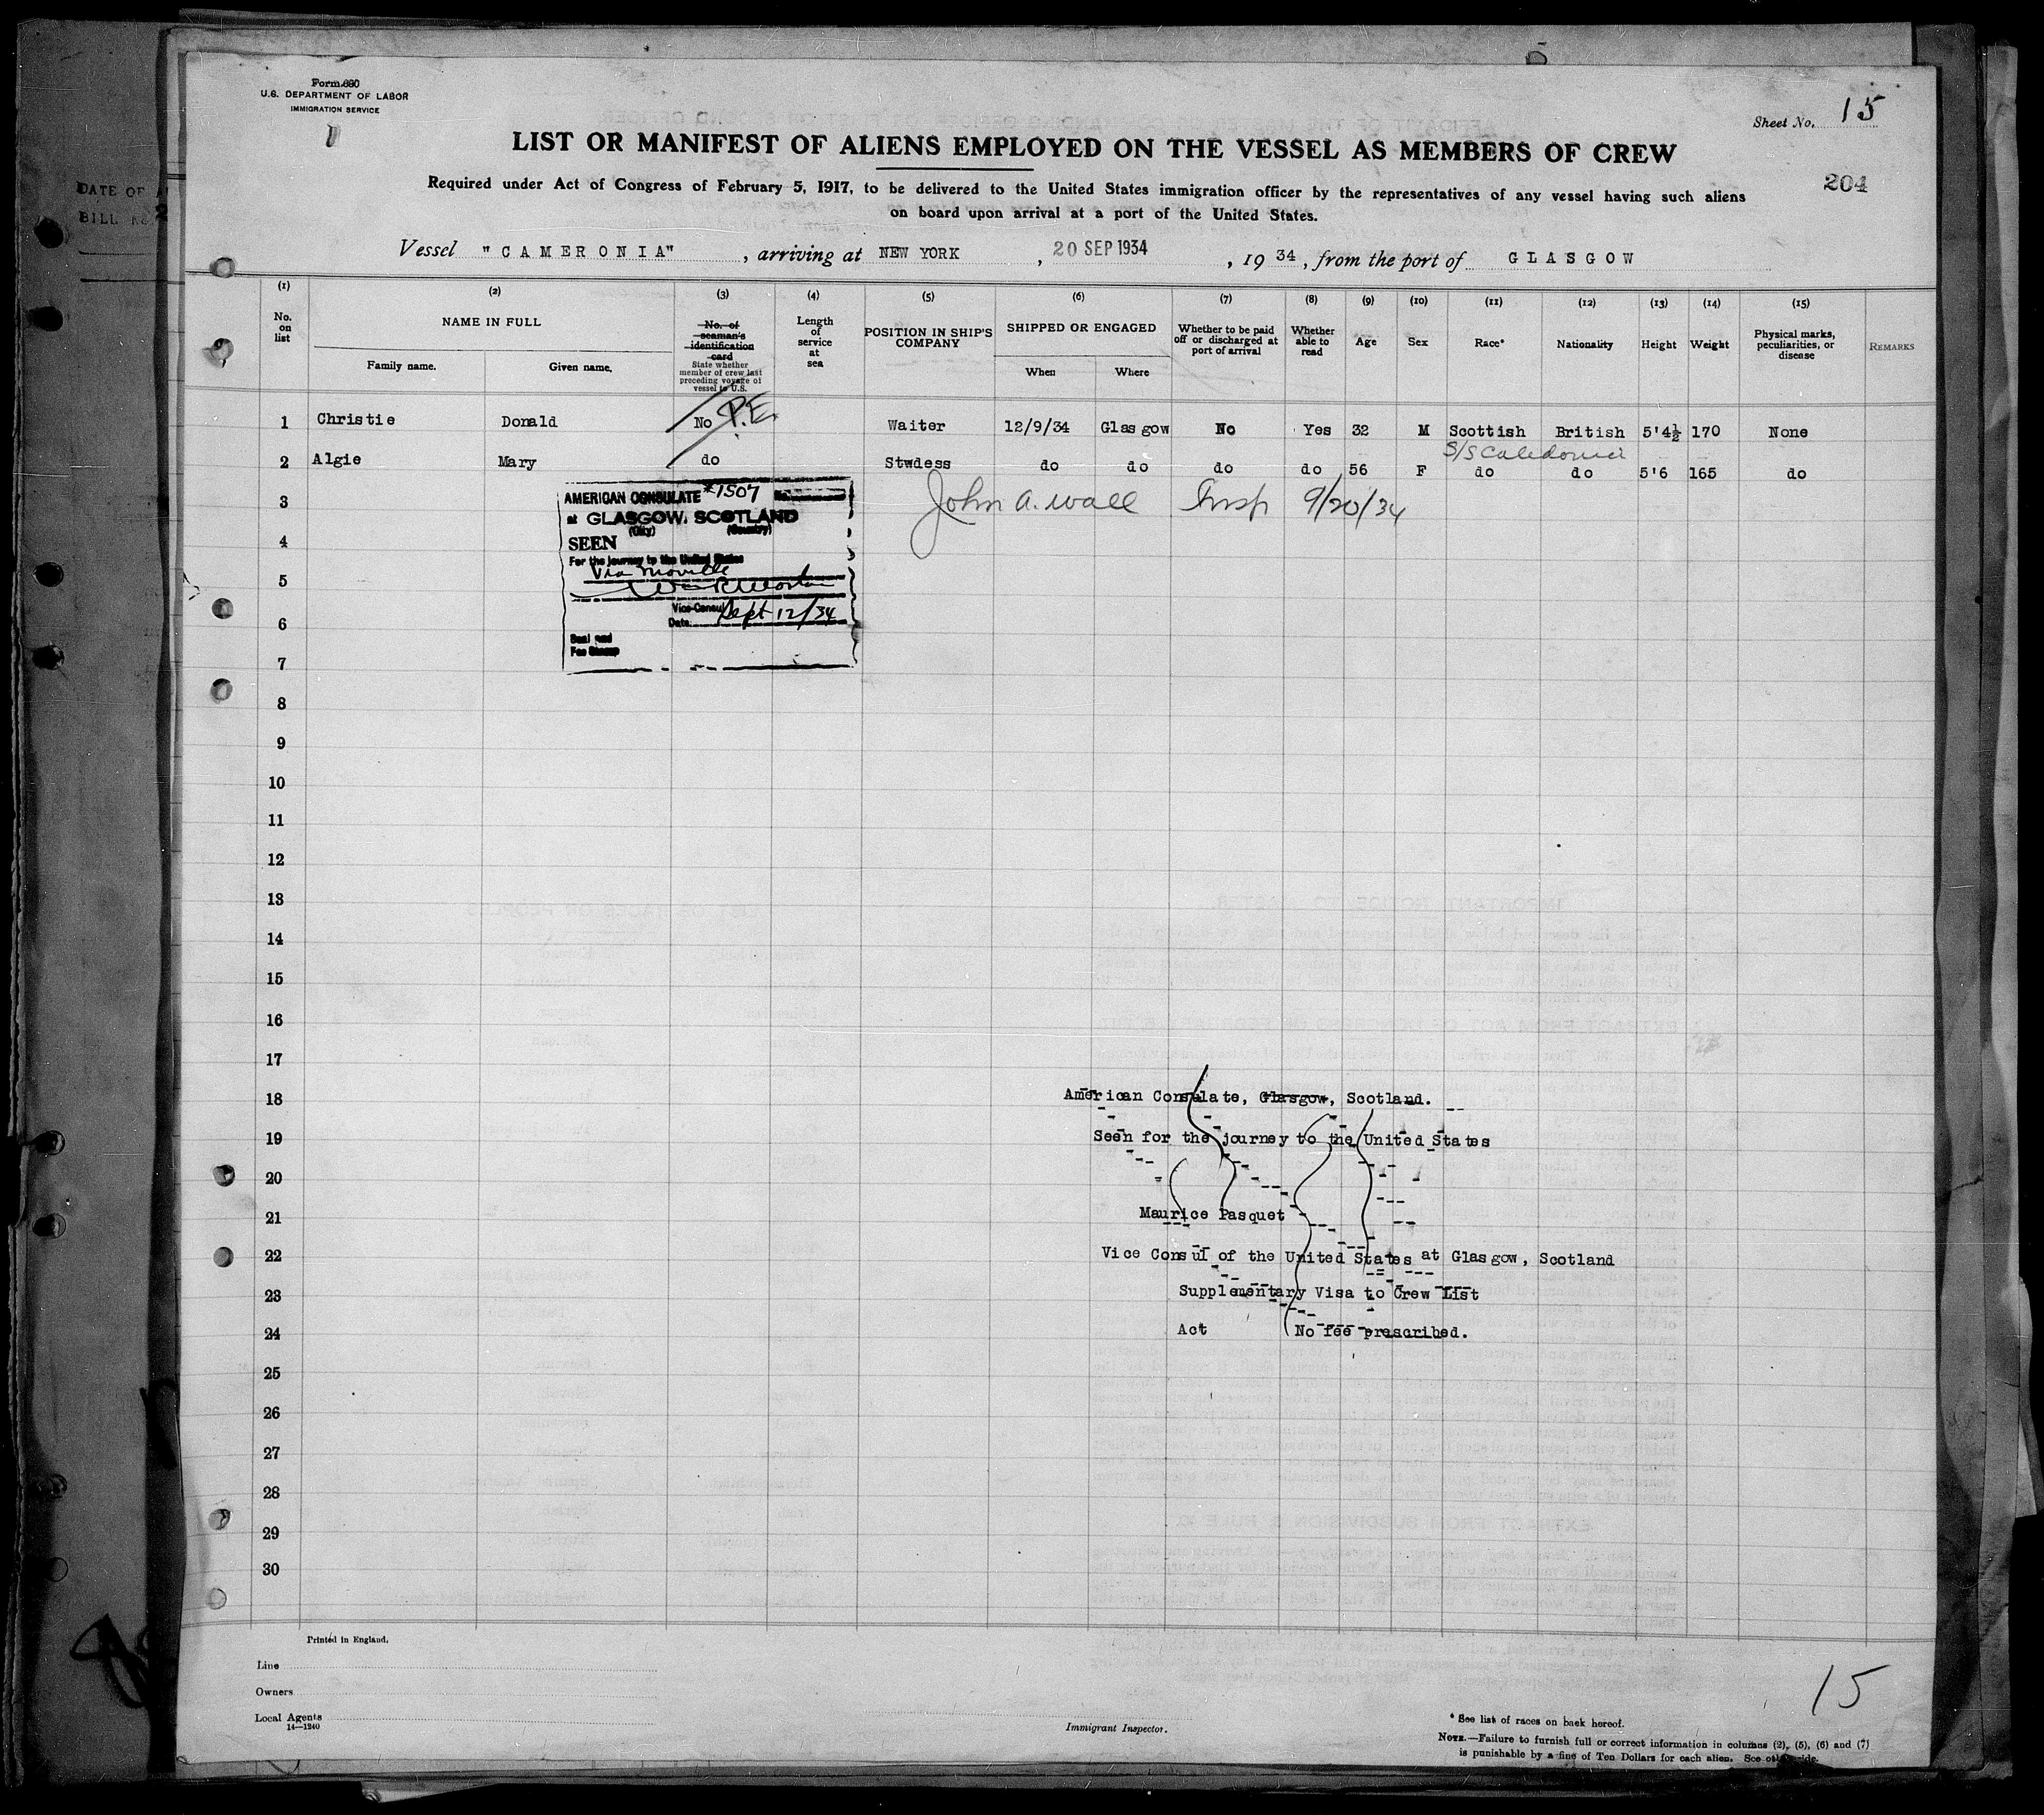 Form 680
U.S. DEPARTMENT OF LABOR
IMMIGRATION SERVICE
Sheet No. 15
LIST OR MANIFEST OF ALIENS EMPLOYED ON THE VESSEL AS MEMBERS OF CREW
204
Required under Act of Congress of February 5, 1917, to be delivered to the United States immigration officer by the representatives of any vessel having such aliens
on board upon arrival at a port of the United States.
DATE OF
BILL
Vessel "CAMERONIA", arriving at NEW YORK, 20 SEP 1934, 1934, from the port of GLASGOW
(1) (2) (3) (4) (5) (6) (7) (8) (9) (10) (11) (12) (13) (14) (15)
No. on list
NAME IN FULL
Family name. Given name.
No. of seaman's identification card
State whether member of crew last preceding voyage of vessel to U.S.
Length of service at sea
POSITION IN SHIP'S COMPANY
SHIPPED OR ENGAGED
When Where
Whether to be paid off or discharged at port of arrival
Whether able to read
Age
Sex
Race*
Nationality
Height
Weight
Physical marks, peculiarities, or disease
REMARKS
1 Christie Donald No P.E. Waiter 12/9/34 Glasgow No Yes 32 M Scottish British 5'4½ 170 None
S/S Caledonia
2 Algie Mary do Stwdess do do do do 56 F do do 5'6 165 do
John A. Wall Insp 9/20/34
AMERICAN CONSULATE #1507
at GLASGOW, SCOTLAND
(City) (Country)
SEEN
For the journey to the United States
Via Moville
Vice-Consul
Date Sept 12/34
Seal and
Fee Stamp
3
4
5
6
7
8
9
10
11
12
13
14
15
16
17
18 American Consulate, Glasgow, Scotland.
19 Seen for the journey to the United States
20
21 Maurice Pasquet
22 Vice Consul of the United States at Glasgow, Scotland
23 Supplementary Visa to Crew List
24 Act No fee prescribed.
25
26
27
28
29
30
Printed in England.
Line
Owners
Local Agents
14—1240
Immigrant Inspector.
15
* See list of races on back hereof.
NOTE.—Failure to furnish full or correct information in columns (2), (5), (6) and (7)
is punishable by a fine of Ten Dollars for each alien. See other side.